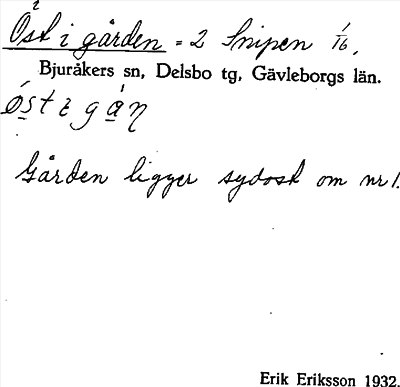 Öst i gården = 2 Snipen 1/16,
Bjuråkers sn, Delsbo tg, Gävleborgs län.
Gården ligger sydost om nr 1.
Erik Eriksson 1932.